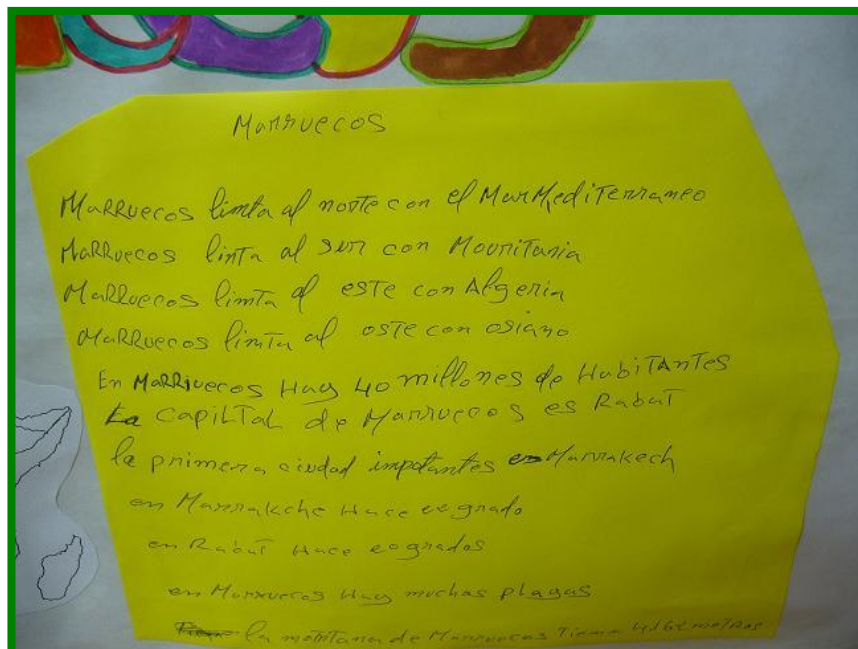 Marruecos
Marruecos limta al norte con el Mar Mediterraneo
Marruecos limta al sur con Mouritania
Marruecos limta al este con Algeria
Marruecos limta al oste con osiano
En Marruecos Hay 40 millones de Habitantes
La capiltal de Marruecos es Rabat
la primera ciudad impotantes es Marrakech
en Marrakche Hace grado
en Rabat Hace grados
en Marruecos Hay muchas playas
la montana de Marruecos Tiene metros